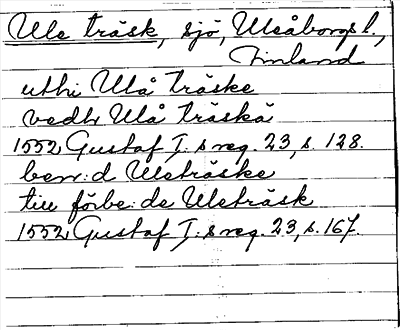 Ule träsk, sjö, Uleåborgs l.,
Finland
uthi Ulå Träske
vedh Ulå träskä
1552 Gustaf I:s reg. 23, s. 128.
ben:d Uleträske
till förbe:de Uleträsk
1552 Gustaf I:s reg. 23, s. 167.